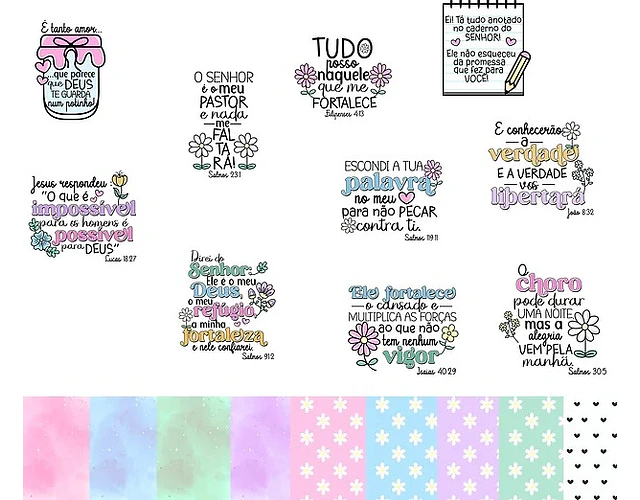 É tanto amor...
...que parece
que DEUS
TE GUARDA
num potinho!
O SENHOR
é o meu
PASTOR
e nada
me
FAL
TA
RÁ!
Salmos 23:1
TUDO
posso
naquele
que me
FORTALECE
Filipenses 4:13
Ei! Tá tudo anotado
no caderno do
SENHOR!
Ele não esqueceu
da promessa
que fez para
VOCÊ!
Jesus respondeu:
"O que é
impossível
para os homens é
possível
para DEUS"
Lucas 18:27
ESCONDI A TUA
palavra
no meu
para não PECAR
contra ti.
Salmos 119:11
E conhecerão
a
verdade
E A VERDADE
vos
libertará
João 8:32
Direi do
Senhor:
Ele é o meu
Deus,
o meu
refúgio,
a minha
fortaleza
e nele confiarei.
Salmos 91:2
Ele fortalece
o cansado e
MULTIPLICA AS FORÇAS
ao que não
tem nenhum
vigor
Isaías 40:29
O
choro
pode durar
UMA NOITE,
mas a
alegria
VEM PELA
manhã.
Salmos 30:5